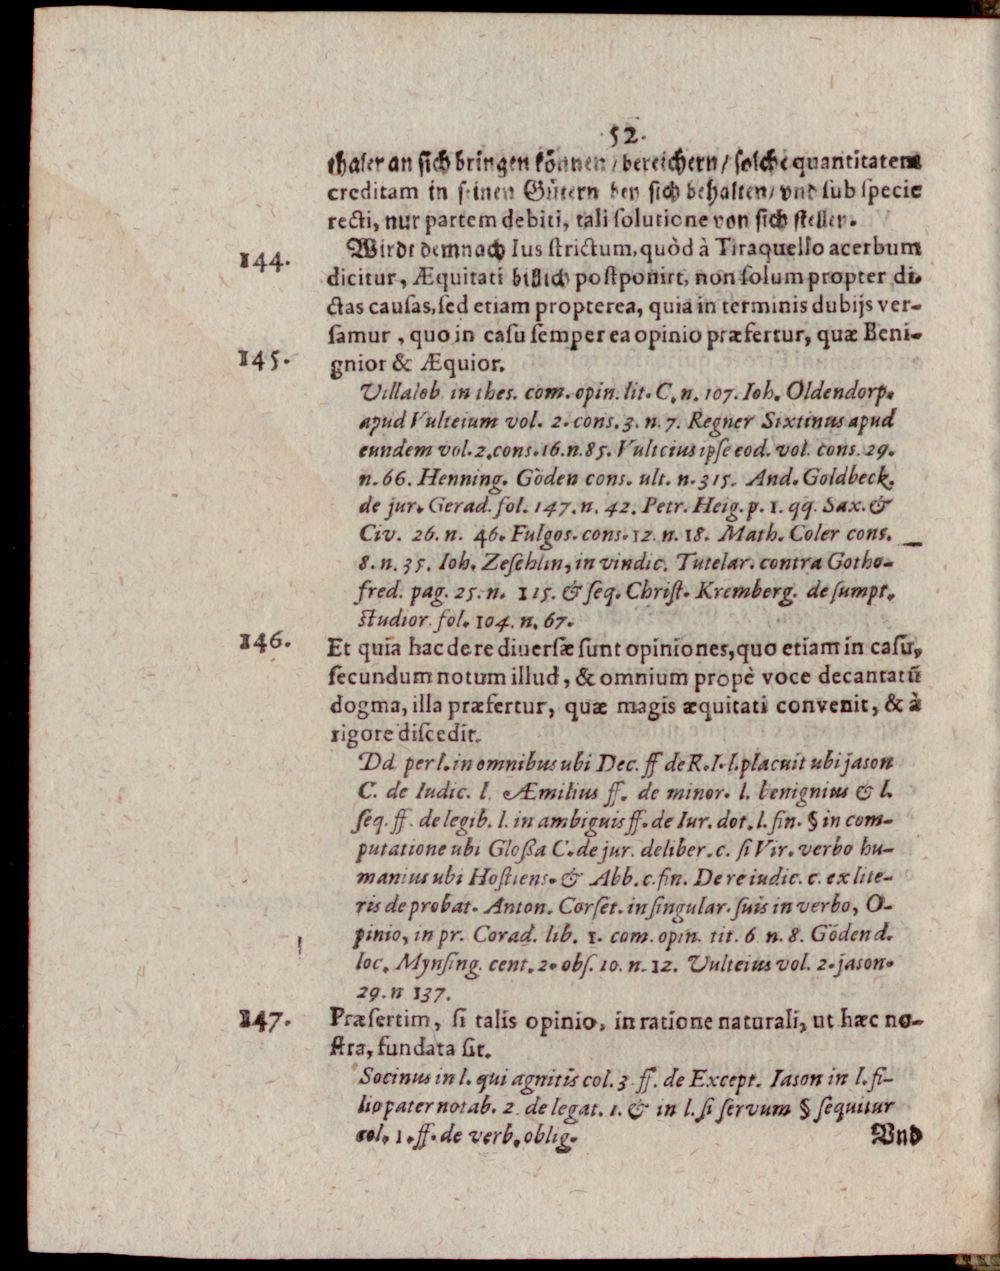 52.
thaler an sich bringen können / bereichern / solche quantitatem
creditam in seinen Gütern bey sich behalten / vnd sub specie
recti, nur partem debiti, tali solutione von sich stellet.
144. Wirdt demnach Ius strictum, quòd à Tiraquello acerbum
dicitur, Æquitati billich postponirt, non solum propter di-
ctas causas, sed etiam propterea, quia in terminis dubijs ver-
samur, quo in casu semper ea opinio præfertur, quæ Beni-
145. gnior & Æquior.
Villalob. in thes. com. opin. lit. C. n. 107. Ioh. Oldendorp.
apud Vulteium vol. 2. cons. 3. n. 7. Regner Sixtinus apud
eundem vol. 2. cons. 16. n. 85. Vulteius ipse eod. vol. cons. 29.
n. 66. Henning. Göden cons. ult. n. 315. And. Goldbeck.
de jur. Gerad. fol. 147. n. 42. Petr. Heig. p. 1. qq. Sax. &
Civ. 26. n. 46. Fulgos. cons. 12. n. 18. Math. Coler cons.
8. n. 35. Ioh. Zeschlin, in vindic. Tutelar. contra Gotho-
fred. pag. 25. n. 115. & seq. Christ. Kremberg. de sumpt.
studior. fol. 104. n. 67.
146. Et quia hac de re diuersæ sunt opiniones, quo etiam in casu,
secundum notum illud, & omnium propè voce decantatū
dogma, illa præfertur, quæ magis æquitati convenit, & à
rigore discedit.
Dd. per l. in omnibus ubi Dec. ff de R. I. l. placuit ubi jason
C. de Iudic. l. Æmilius ff. de minor. l. benignius & l.
seq. ff. de legib. l. in ambiguis ff. de Iur. dot. l. fin. § in com-
putatione ubi Glossa C. de jur. deliber. c. si Vir. verbo hu-
manius ubi Hostiens. & Abb. c. fin. De re iudic. c. ex lite-
ris de probat. Anton. Corset. in singular. suis in verbo, O-
pinio, in pr. Corad. lib. 1. com. opin. tit. 6 n. 8. Göden d.
loc. Mynsing. cent. 2. obs. 10. n. 12. Vulteius vol. 2. jason.
29. n 137.
147. Præsertim, si talis opinio, in ratione naturali, ut hæc no-
stra, fundata sit.
Socinus in l. qui agnitis col. 3. ff. de Except. Iason in l. fi-
lio pater notab. 2. de legat. 1. & in l. si servum § sequitur
col. 1. ff. de verb. oblig.
Vnd